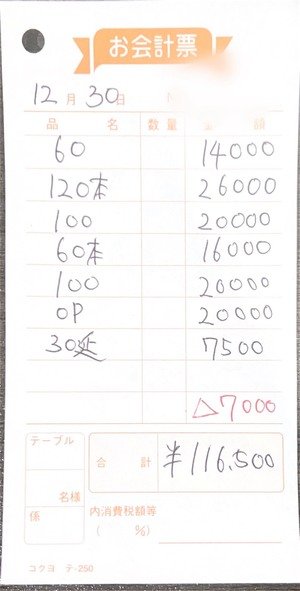 お会計票
12月30日
品名 数量 金額
60 14000
120本 26000
100 20000
60本 16000
100 20000
OP 20000
30延 7500
△7000
テーブル
名様
係
合計 ¥116,500
内消費税額等
( %)
コクヨ テ-250